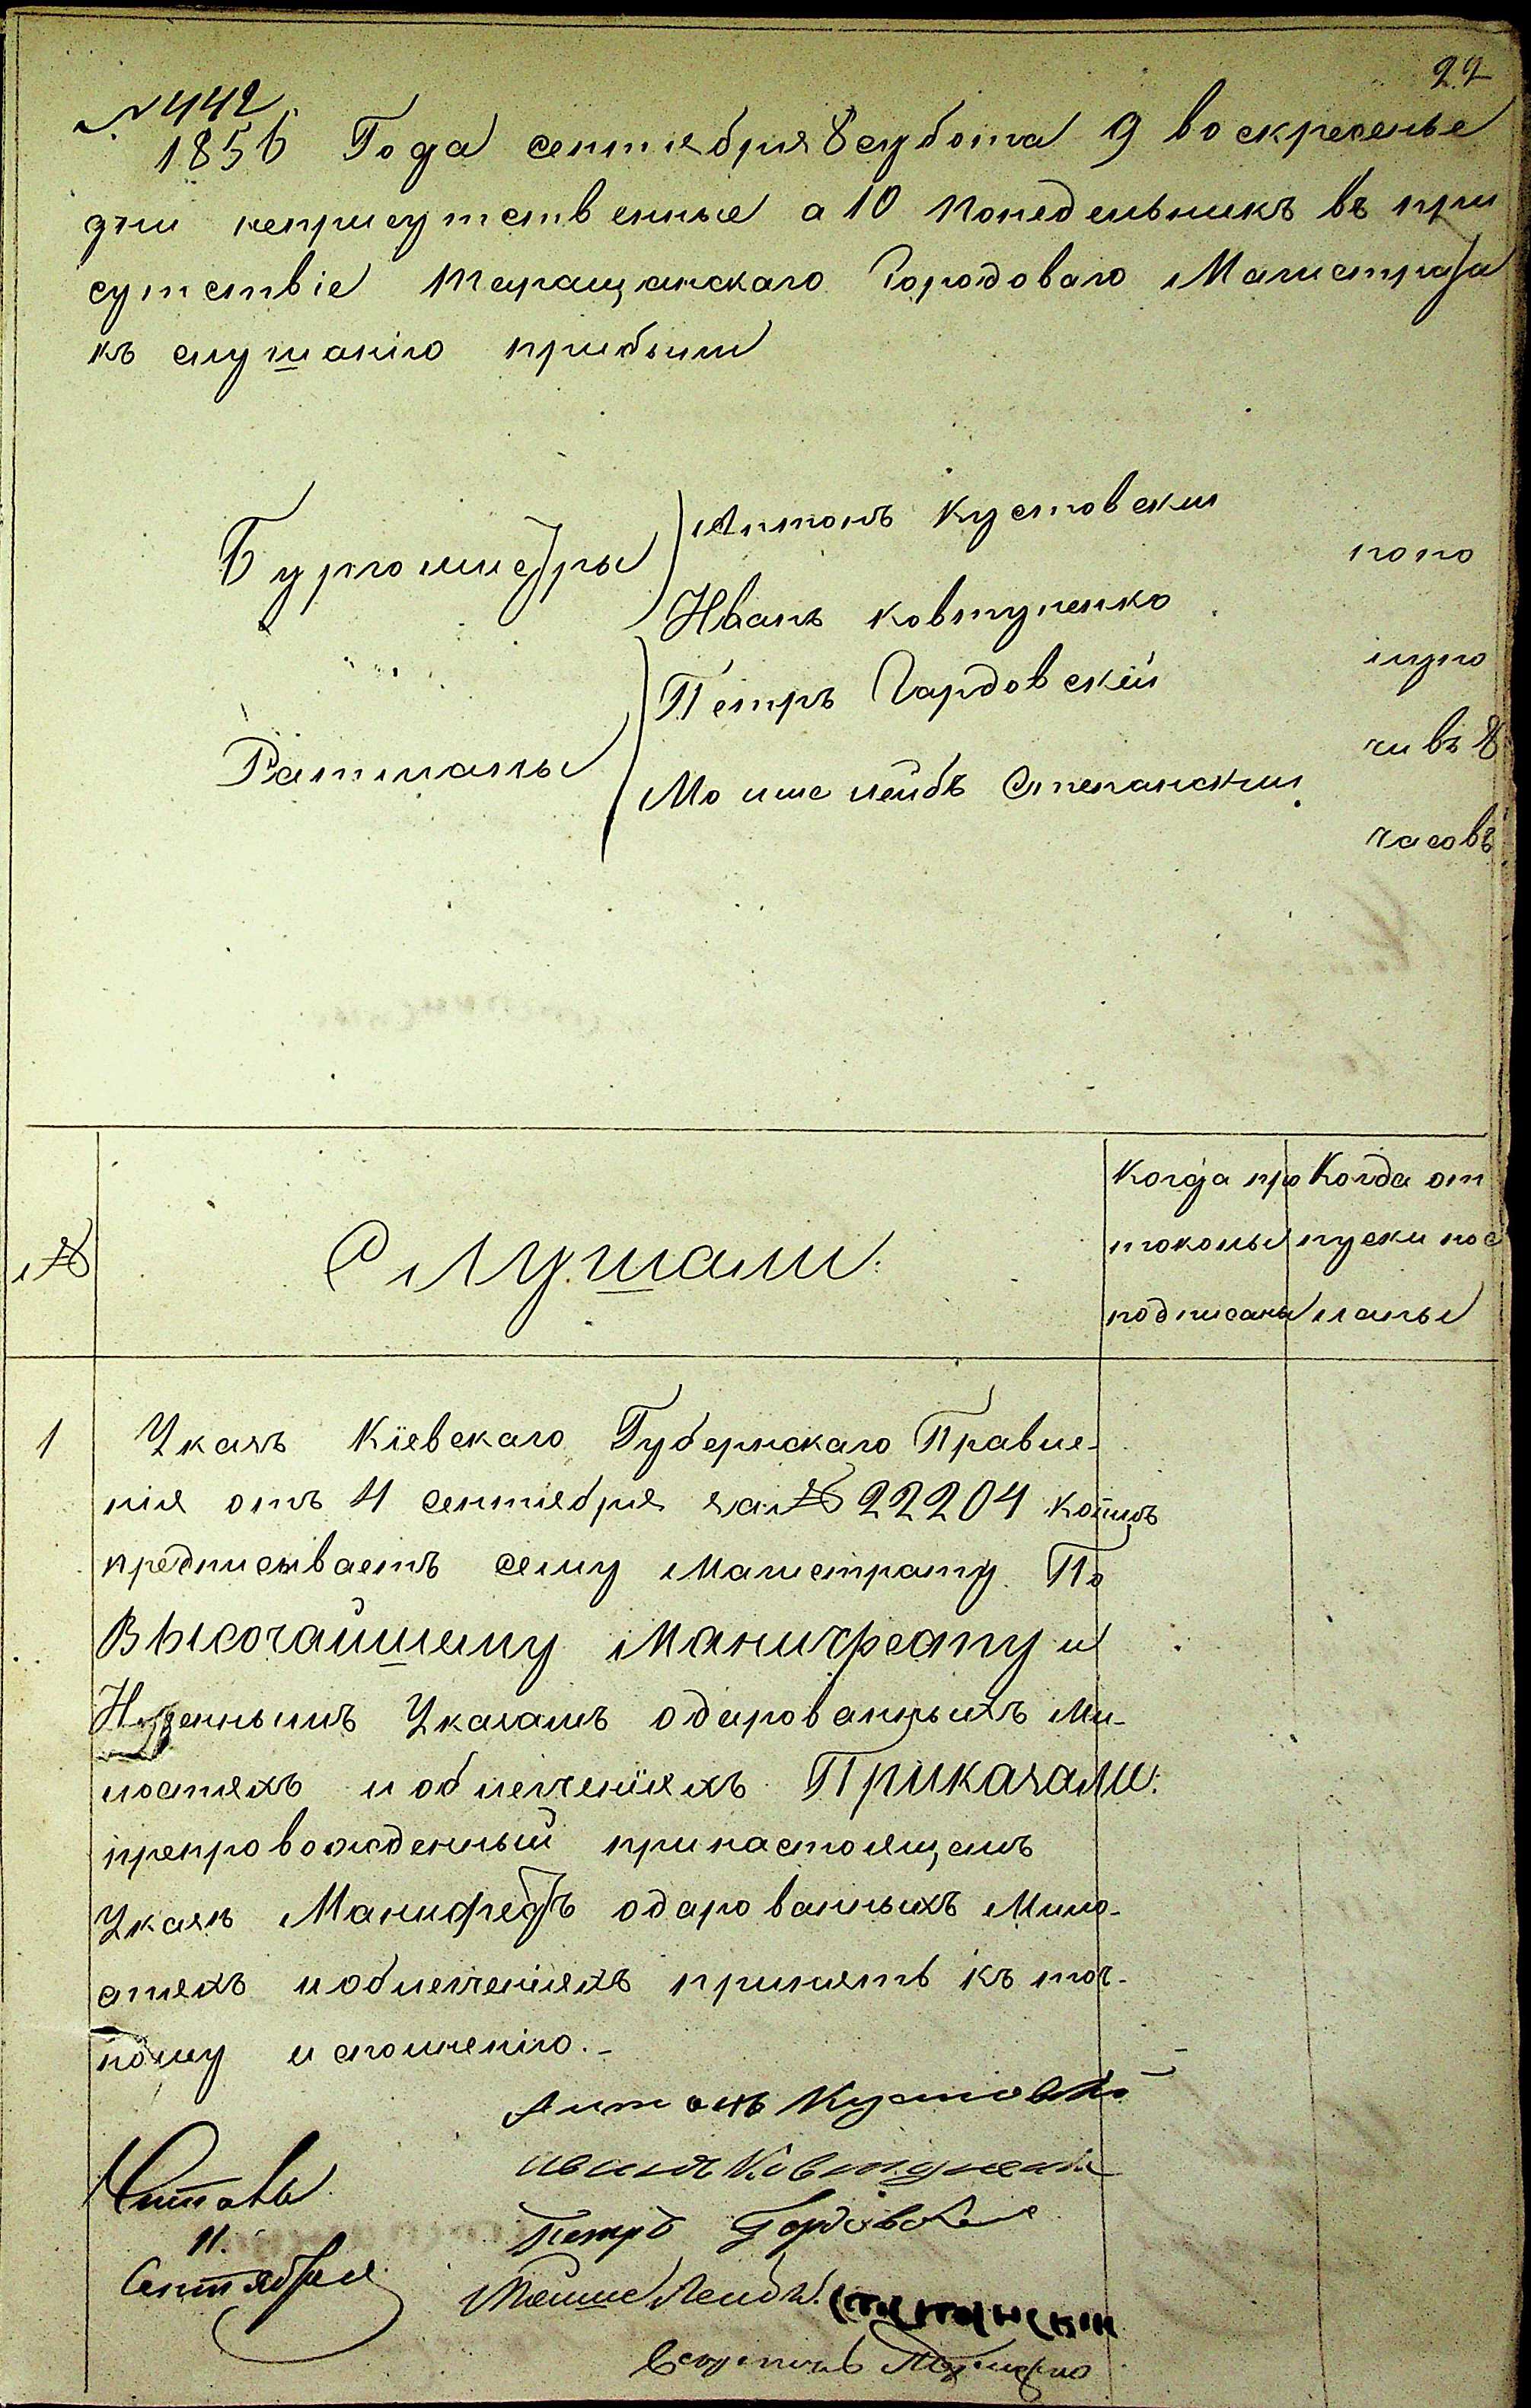 22
№ 442
1856 Года сентября 8 субота 9 воскресенье
дни неприсутственные а 10 понедельникъ въ при
сутствіе Таращанскаго Городоваго Магистрата
къ слушанію прибыли
Бургомистры
Антонъ Кустовски
Иванъ Ковтуненко
Ратманы
Петръ Гардовскій
Мошше Лейбъ Степански
попо
лудно
чи въ 8
часовъ
№
Слушали:
Когда про
токолы
подписаны
Когда от
пуски пос
ланы
1
Указъ Кіевскаго Губернскаго Правле-
нія отъ 4 сентября за № 22204 коимъ
предписываетъ сему Магистрату По
Высочайшему Манифесту и
Имменнымъ Указамъ одарованныхъ Ми-
лостяхъ и облегченіяхъ Приказали:
препровожденный при настоящемъ
Указъ Манифестъ одарованныхъ Мило-
стяхъ и облегченіяхъ принять къ точ-
ному исполненію.-
Антонъ Кустовскій
иванъ Ковтуненко
Петръ Гордовскі
Мошше Лейбъ Степанскій
Читалъ
11.
Сентября
Секретарь